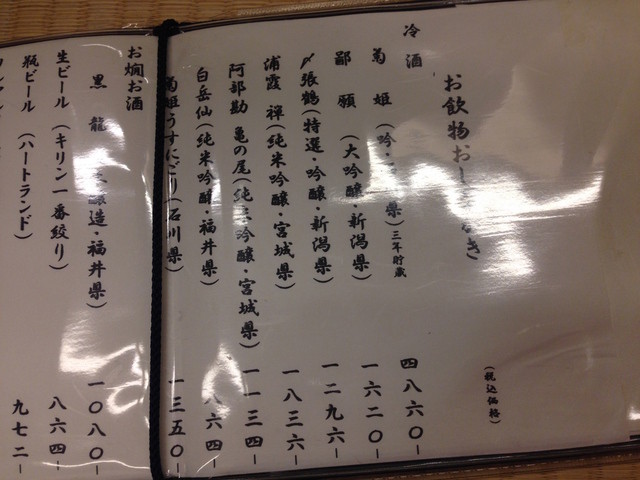 お飲物おし き
(税込価格)
冷酒
菊姫 (吟・ 県)三年貯蔵 四八六〇-
鄙願 (大吟醸・新潟県) 一六二〇-
〆張鶴(特選・吟醸・新潟県) 一二九六-
浦霞 禅(純米吟醸・宮城県) 一八三六-
阿部勘 亀の尾(純米吟醸・宮城県) 一一三四-
白岳仙(純米吟醸・福井県) 八六四-
菊姫うすにごり(石川県) 一三五〇-
お燗お酒
黒龍 醸造・福井県) 一〇八〇-
生ビール (キリン一番絞り) 八六四-
瓶ビール (ハートランド) 九七二-